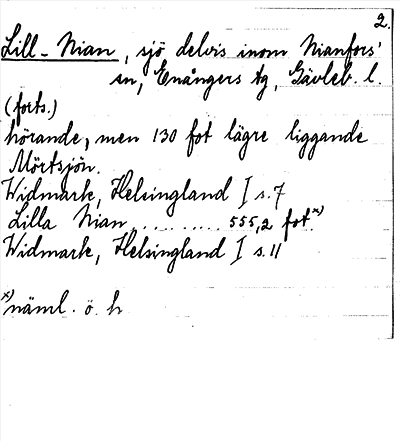 2.
Lill-Nian, sjö delvis inom Nianfors'
sn, Enångers tg, Gävleb. l.
(forts.)
hörande, men 130 fot lägre liggande
Mörtsjön.
Widmark, Helsingland I s. 7
Lilla Nian . . . . . . . . . 555,2 fot x)
Widmark, Helsingland I s. 11
x) näml. ö. h